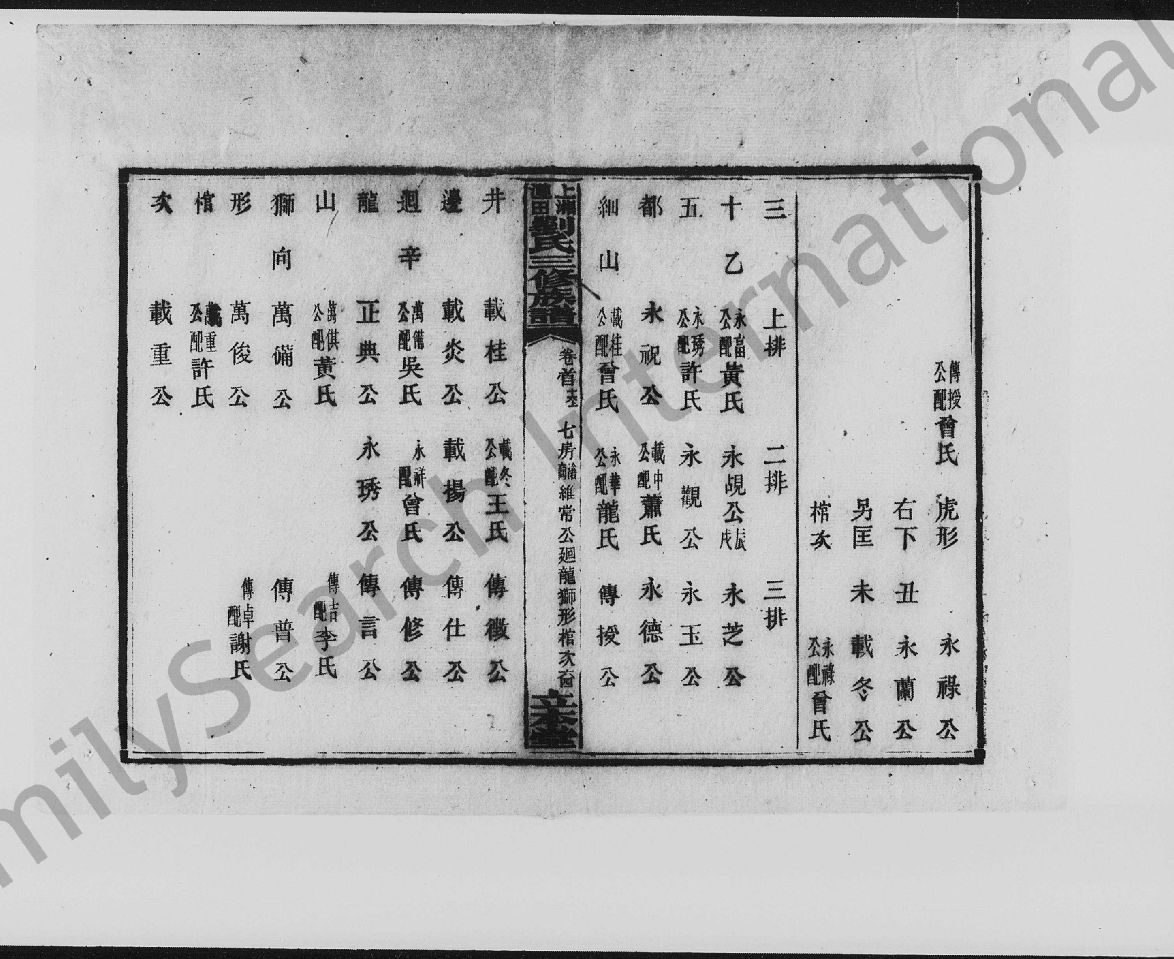 傳授公配曾氏 虎形 永祿公
右下 丑 永蘭公
另匡 未 載冬公
棺次 永祿公配曾氏
三 上排 二排 三排
十乙 永富公配黃氏 永覘公 辰戌 永芝公
五 永琇公配許氏 永觀公 永玉公
都 永祝公 載中公配蕭氏 永德公
細山 載桂公配曾氏 永華公配龍氏 傳授公
上湘
田劉氏三修族譜
卷首 七房 維常公廻龍獅形棺次
立本堂
井 載桂公 載冬公配王氏 傳徽公
邊 載炎公 載揚公 傳仕公
廻辛 萬備公配吳氏 永祥配曾氏 傳修公
龍 正典公 永琇公 傳言公
山 萬俱公配黃氏 傳吉配李氏
獅向 萬備公 傳普公
形 萬俊公 傳卓配謝氏
棺 載重公配許氏
次 載重公
FamilySearch International